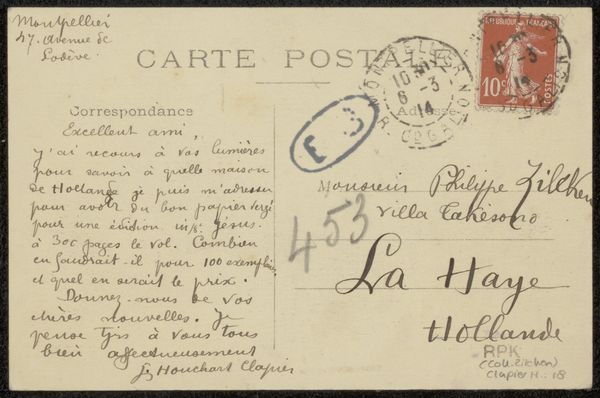 Montpellier
47. Avenue de
Lodève
CARTE POSTALE
REPUBLIQUE FRANÇAISE
10c
POSTES
MONTPELLIER
10
6 - 3
14
Correspondance
Adresse
F 3
453
Excellent ami,
J'ai recours à vos lumières
pour savoir à quelle maison
de Hollande je puis m'adresser
pour avoir du bon papier vergé
pour une édition in/8° Jésus.
à 300 pages le vol. Combien
en faudrait-il pour 100 exemplaires
et quel en serait le prix.
Donnez-nous de vos
chères nouvelles. Je
pense tjrs à vous tous
bien affectueusement
Houchart Clapier
Monsieur Philippe Zilcken
Villa
La Haye
Hollande
RPK
(Coll. Zilcken)
Clapier H.: 18